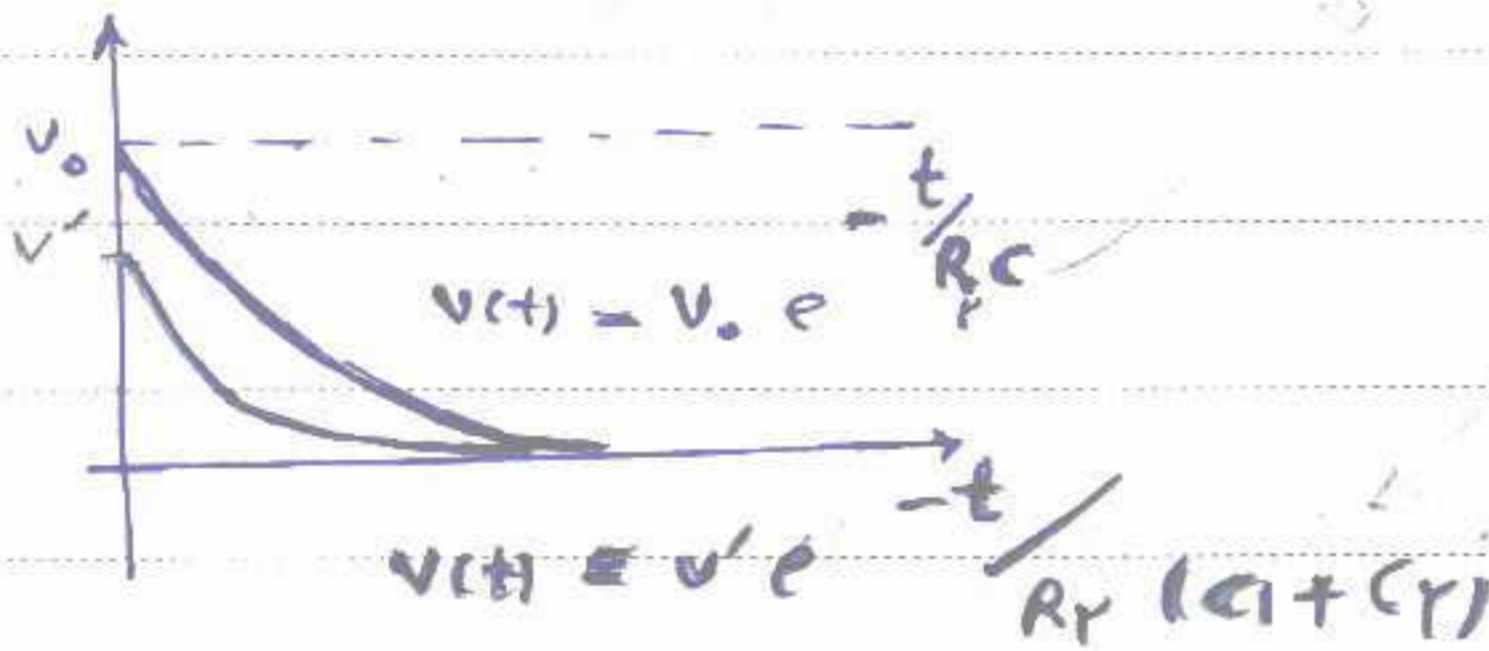 V₀
V′
V(t) = V₀ e^(-t/R₂C)
V(t) = V′ e^(-t/R۲ (C1 + C۲))